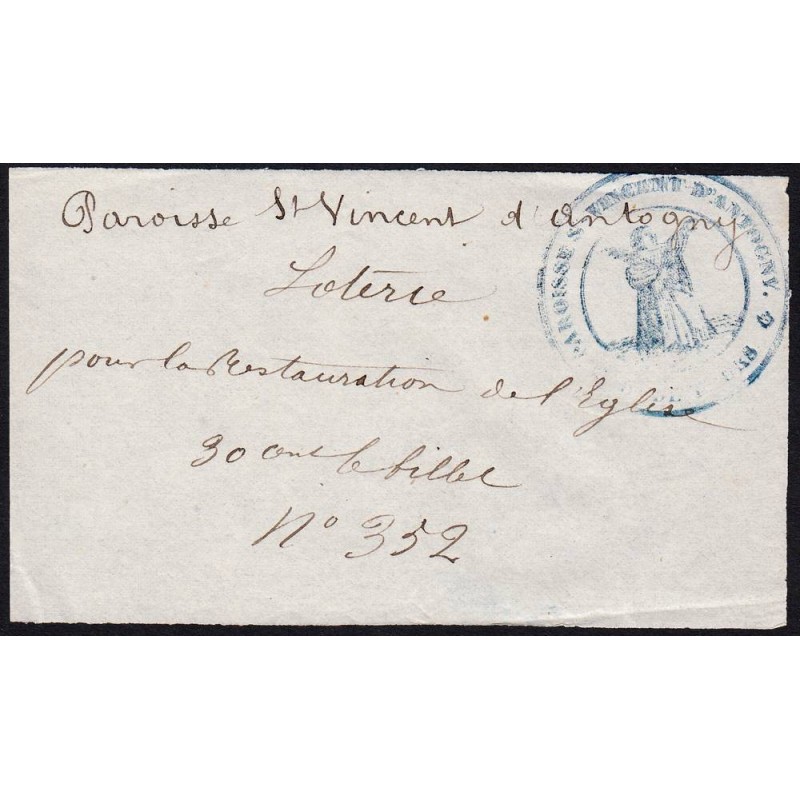 Paroisse St Vincent d'Antogny
Loterie
pour la Restauration de l'Eglise
30 cent le billet
N° 352
PAROISSE S. VINCENT D'ANTOGNY.